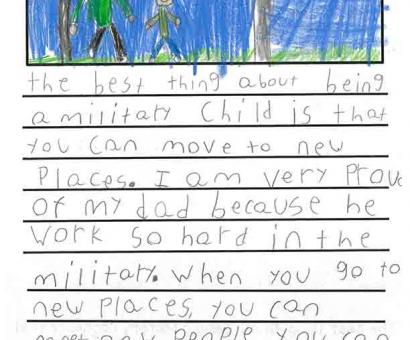 the best thing about being
a military Child is that
you can move to new
Places. I am very Proud
of my dad because he
work so hard in the
military. when you go to
new Places, you can
people you can